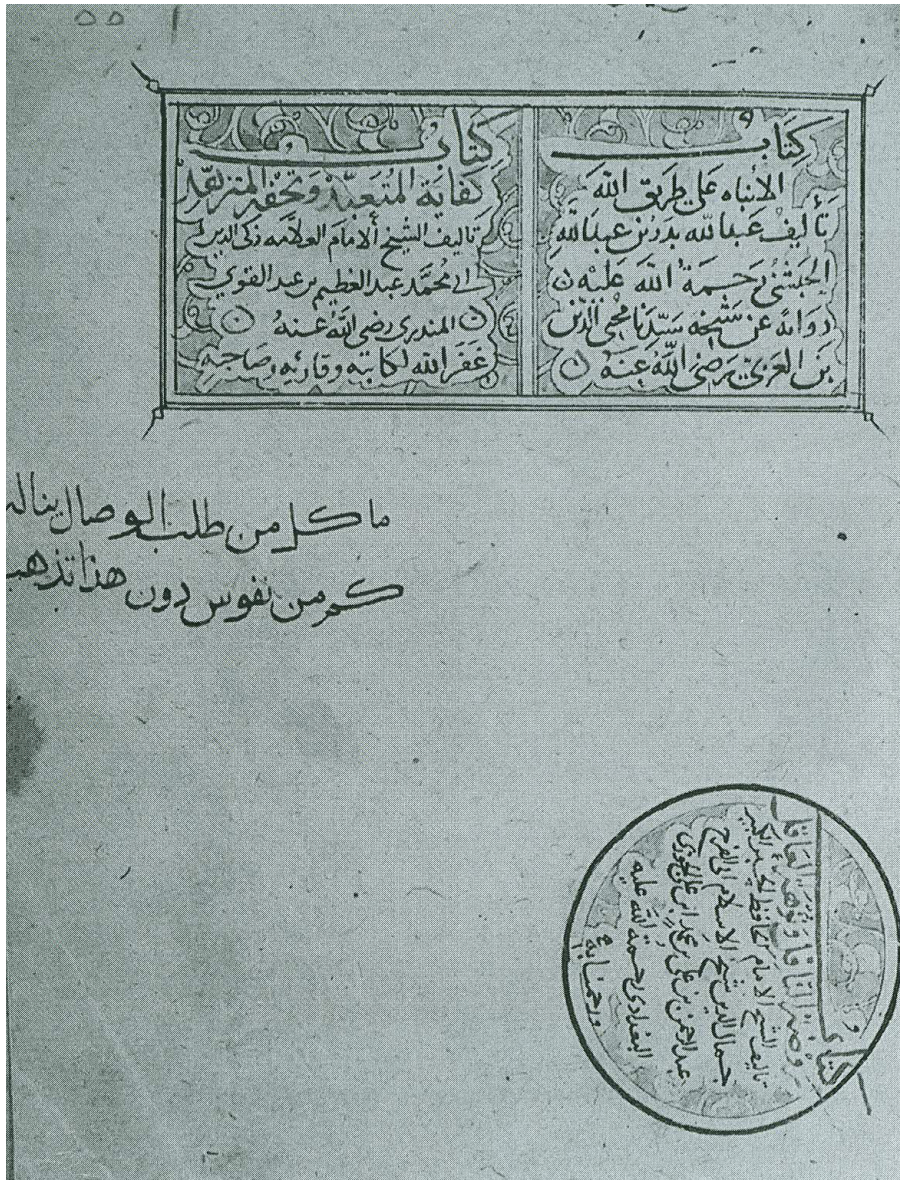 ٥٥
كتاب
الأنباه على طريق الله
تأليف عبد الله بدر بن عبد الله
الحبشي رحمة الله عليه ن
رواية عن شيخه سيدنا محيي الدين
بن العربي رضي الله عنه ن
كتاب
كفاية المتعبد وتحفة المتزهد
تاليف الشيخ الامام العلامه زكي الدين
ابي محمد عبد العظيم بن عبد القوي
ن المنذري رضي الله عنه ن
غفر الله لكاتبه وقارئه وصاحبه
ما كل من طلب الوصال يناله
كم من نفوس دون هذا تذهب
كتاب
العاقل
تاليف الشيخ الامام الحافظ الكبير
جمال الدين شيخ الاسلام ابي الفرج
عبد الرحمن بن علي بن محمد ابن علي الجوزي
البغدادي رحمة الله عليه
ورحمنا به